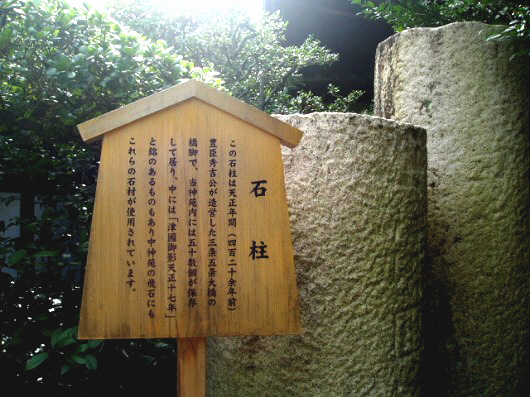 石柱
この石柱は天正年間(四百二十余年前)
豊臣秀吉公が造営した三条五条大橋の
橋脚で、当神苑内には五十数個が保存
して居り、中には「津國御影天正十七年」
と銘のあるものもあり中神苑の飛石にも
これらの石材が使用されています。